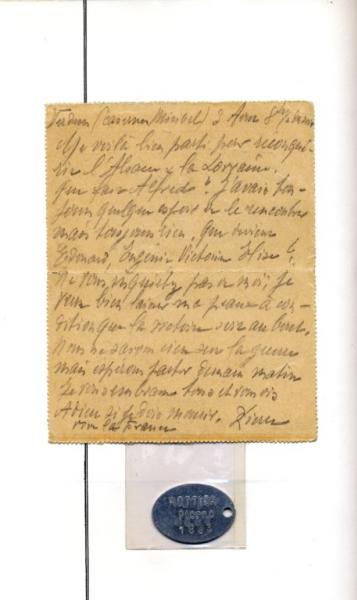 Verdun (Caserne Miribel) 3 Aout 8h du soir
Me voilà bien parti pour reconqué
rir l'Alsace & la Lorraine.
Que fait Alfred? J'avais tou-
jours quelque espoir de le rencontrer
mais toujours rien, que devient
Edouard, Eugénie Victorine Elise?
Ne vous inquiétez pas de moi; je
veux bien laisser ma peau à con-
dition que la victoire soit au bout.
Nous ne savons rien sur la guerre
mais espérons partir demain matin
Je vous embrasse tous et vous dis
Adieu si je dois mourir. Pierre
vive la France
PIERRE